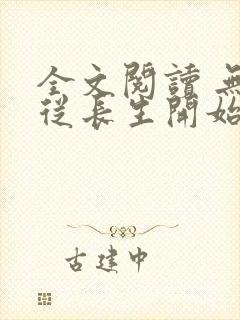 全文閱讀 無
從長生開始
古建中